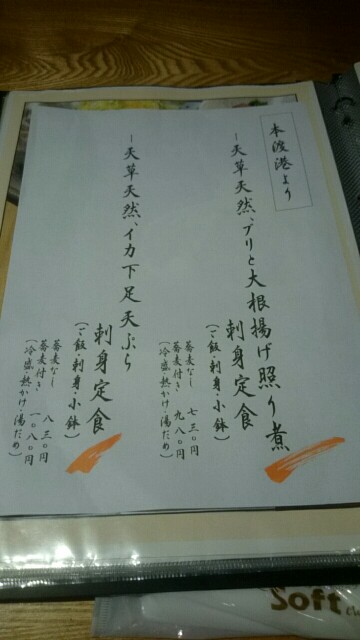 本渡港より
－天草天然、ブリと大根揚げ照り煮
刺身定食
(ご飯・刺身・小鉢)
蕎麦なし 七三〇円
蕎麦付き 九八〇円
(冷盛・熱かけ・湯だめ)
－天草天然、イカ下足天ぷら
刺身定食
(ご飯・刺身・小鉢)
蕎麦なし 八三〇円
蕎麦付き 一〇八〇円
(冷盛・熱かけ・湯だめ)
Soft